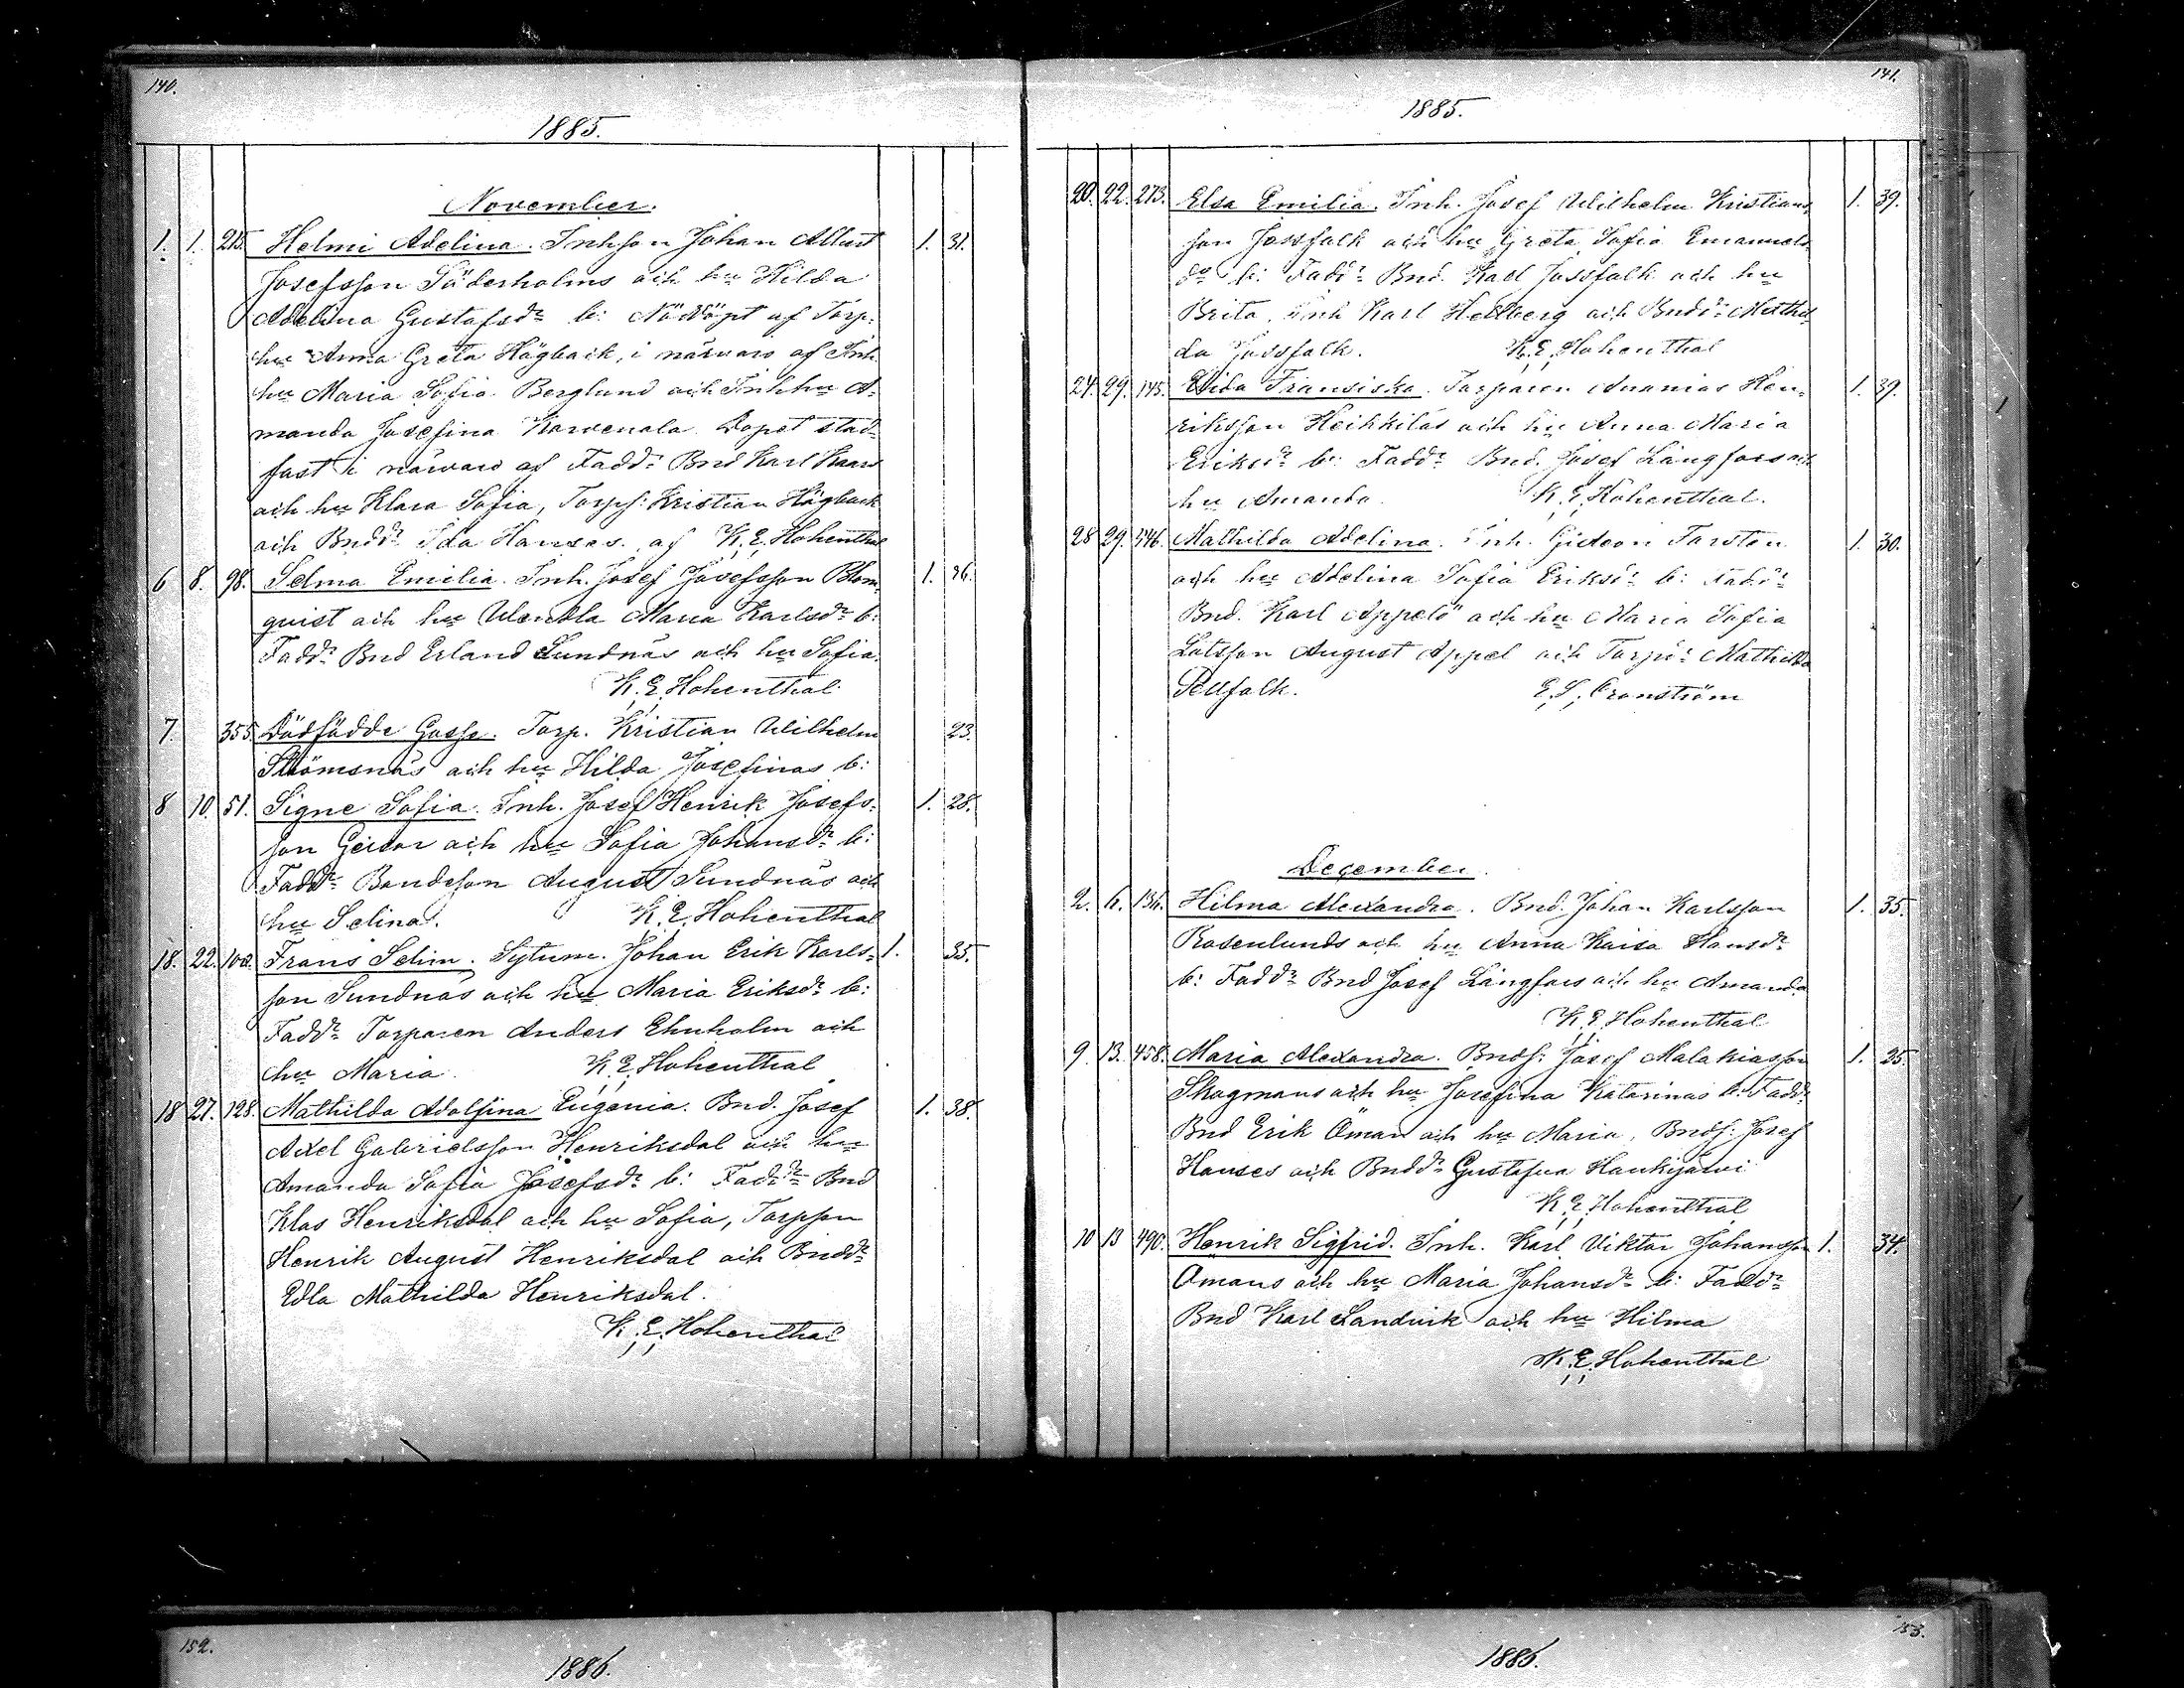 140.
1885.
November.
1. 1. 215. Helmi Adelina. Inhson Johan Albert 1. 31.
Josefsson Söderholms och hu Hilda
Adelina Gustafsdr b: Nöddöpt af Torp.
hu Anna Greta Högback, i närvaro af Inh.
hu Maria Sofia Berglund och Inh hu A-
manda Josefina Karvenala. Dopet stad-
fäst i närvaro af Faddr Bnd Karl
och hu Klara Sofia, Torps: Kristian Högback
och Bnddr Ida Hanses. af K. E. Hohenthal
6 8. 98. Selma Emilia. Inh. Josef Josefsson Blom- 1. 36.
quist och hu Wendla Maria Karlsdr b:
Faddr Bnd Erland Sundnäs och hu Sofia.
K. E. Hohenthal
7. 355. Dödfödde Gosse. Torp. Kristian Wilhelm 23.
Strömsnäs och hu Hilda Josefinas b:
8 10. 51. Signe Sofia. Inh. Josef Henrik Josefs- 1. 28.
son Geisor och hu Sofia Johansdr b:
Faddr Bondeson August Sundnäs och
hu Selina. K. E. Hohenthal
18. 22. 102. Frans Selim. Sytum. Johan Erik Karls- 1. 35.
son Sundnäs och hu Maria Eriksdr b:
Faddr Torparen Anders Ehnholm och
hu Maria. K. E. Hohenthal
18 27. 128. Mathilda Adolfina Eugenia. Bnd. Josef 1. 38.
Axel Gabrielsson Henriksdal och hu
Amanda Sofia Josefsdr b: Faddr Bnd
Klas Henriksdal och hu Sofia, Torpson
Henrik August Henriksdal och Bnddr
Edla Mathilda Henriksdal.
K. E. Hohenthal
141.
1885.
20. 22. 273. Elsa Emilia. Inh. Josef Wilhelm Kristians- 1. 39.
son Jossfolk och hu Greta Sofia Emanuels-
dr b: Faddr Bnd. Karl Jossfolk och hu
Brita, Inh Karl Hellberg och Bnddr Mathil-
da Jossfolk. K. E. Hohenthal
24. 29. 145. Elida Fransiska. Torparen Ananias Hen- 1. 39.
riksson Heikkiläs och hu Anna Maria
Eriksdr b: Faddr Bnd. Josef Långfors och
hu Amanda. K. E. Hohenthal.
28 29. 146. Mathilda Adelina. Inh. Gideon Forsten 1. 30.
och hu Adelina Sofia Eriksdr b: Faddr
Bnd. Karl Appelö och hu Maria Sofia
Lotsson August Appel och Torpdr Mathilda
Pellfolk. E. S. Cronström
December.
2. 6. 136. Hilma Alexandra. Bnd. Johan Karlsson 1. 35.
Rosenlunds och hu Anna Kaisa Hansdr
b: Faddr Bnd Josef Långfors och hu Amanda
K. E. Hohenthal
9. 13. 458. Maria Alexandra. Bnds: Josef Malakiasson 1. 25.
Skogmans och hu Josefina Katarinas b: Faddr
Bnd Erik Öman och hu Maria, Bnds: Josef
Hanses och Bnddr Gustafva Haukijärvi
K. E. Hohenthal
10 13 490. Henrik Sigfrid. Inh. Karl Viktor Johansson 1. 34.
Ömans och hu Maria Johansdr b: Faddr
Bnd Karl Sandvik och hu Hilma
K. E. Hohenthal
152.
1886.
153.
1886.